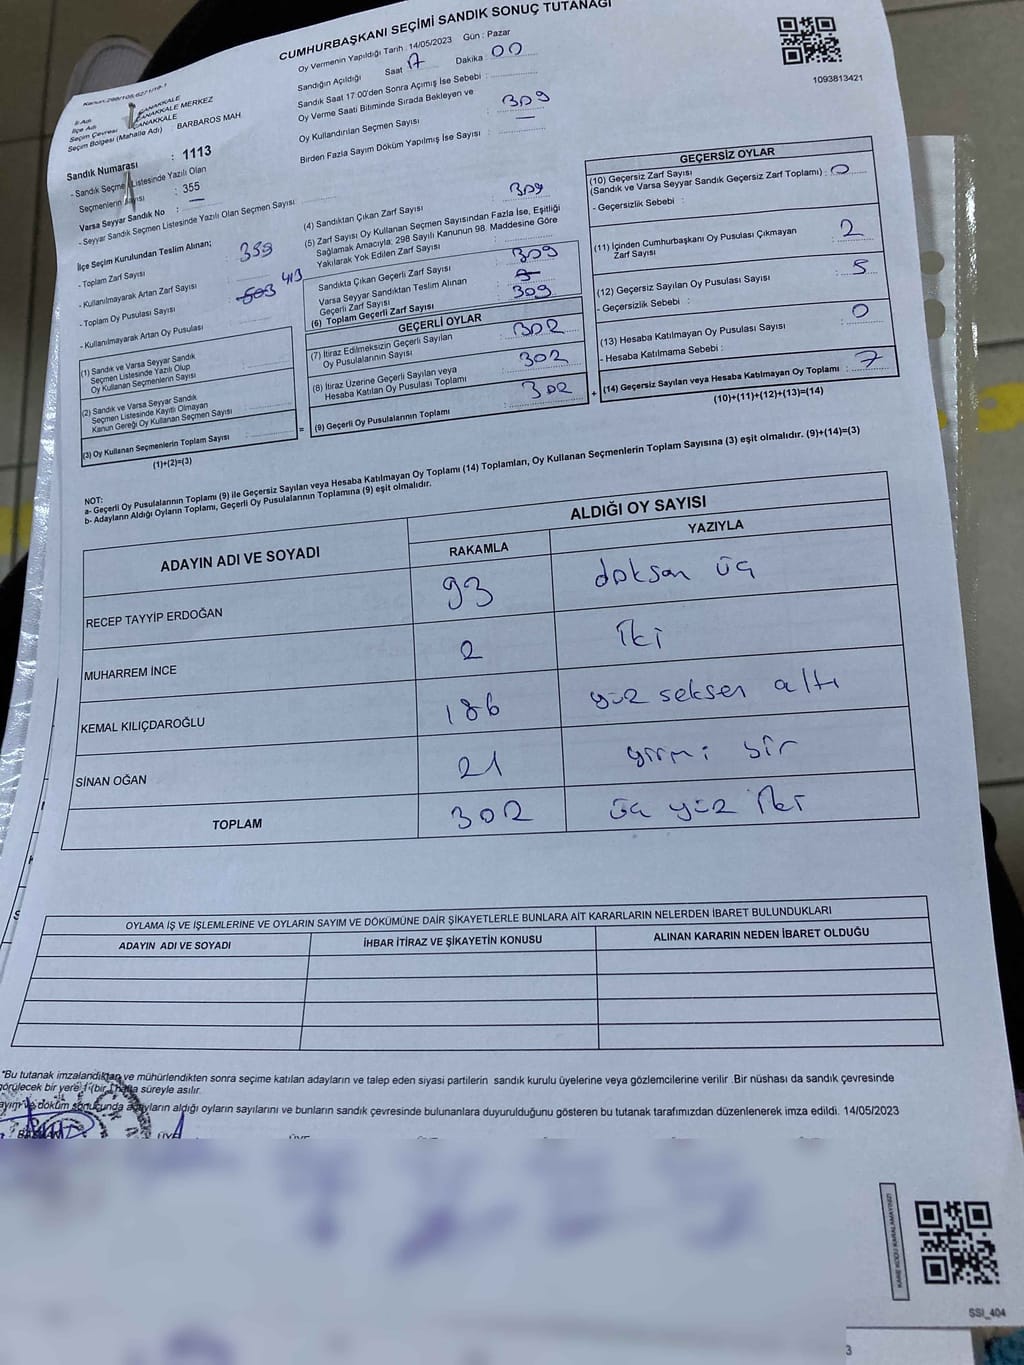 CUMHURBAŞKANI SEÇİMİ SANDIK SONUÇ TUTANAĞI
Oy Vermenin Yapıldığı Tarih : 14/05/2023 Gün : Pazar
Sandığın Açıldığı Saat 17 Dakika 00
Sandık Saat 17:00'den Sonra Açımış İse Sebebi :
Oy Verme Saati Bitiminde Sırada Bekleyen ve
Oy Kullandırılan Seçmen Sayısı : 309
Birden Fazla Sayım Döküm Yapılmış İse Sayısı : —
1093813421
İli Adı ÇANAKKALE
İlçe Adı ÇANAKKALE MERKEZ
Seçim Çevresi ÇANAKKALE
Seçim Bölgesi (Mahalle Adı) : BARBAROS MAH
Sandık Numarası : 1113
- Sandık Seçmen Listesinde Yazılı Olan
Seçmenlerin Sayısı : 355
Varsa Seyyar Sandık No : —
- Seyyar Sandık Seçmen Listesinde Yazılı Olan Seçmen Sayısı
İlçe Seçim Kurulundan Teslim Alınan;
- Toplam Zarf Sayısı : 359
- Kullanılmayarak Artan Zarf Sayısı :
- Toplam Oy Pusulası Sayısı : 413
- Kullanılmayarak Artan Oy Pusulası
(1) Sandık ve Varsa Seyyar Sandık
Seçmen Listesinde Yazılı Olup
Oy Kullanan Seçmenlerin Sayısı
(2) Sandık ve Varsa Seyyar Sandık
Seçmen Listesinde Kayıtlı Olmayan
Kanun Gereği Oy Kullanan Seçmen Sayısı
(3) Oy Kullanan Seçmenlerin Toplam Sayısı
(1)+(2)=(3)
(4) Sandıktan Çıkan Zarf Sayısı 309
(5) Zarf Sayısı Oy Kullanan Seçmen Sayısından Fazla İse, Eşitliği
Sağlamak Amacıyla; 298 Sayılı Kanunun 98. Maddesine Göre
Yakılarak Yok Edilen Zarf Sayısı
Sandıkta Çıkan Geçerli Zarf Sayısı : 309
Varsa Seyyar Sandıktan Teslim Alınan
Geçerli Zarf Sayısı :
(6) Toplam Geçerli Zarf Sayısı : 309
GEÇERLİ OYLAR
(7) İtiraz Edilmeksizin Geçerli Sayılan
Oy Pusulalarının Sayısı : 302
(8) İtiraz Üzerine Geçerli Sayılan veya
Hesaba Katılan Oy Pusulası Toplamı : 302
(9) Geçerli Oy Pusulalarının Toplamı : 302
GEÇERSİZ OYLAR
(10) Geçersiz Zarf Sayısı
(Sandık ve Varsa Seyyar Sandık Geçersiz Zarf Toplamı) : 0
- Geçersizlik Sebebi :
(11) İçinden Cumhurbaşkanı Oy Pusulası Çıkmayan
Zarf Sayısı : 2
(12) Geçersiz Sayılan Oy Pusulası Sayısı : 5
- Geçersizlik Sebebi :
(13) Hesaba Katılmayan Oy Pusulası Sayısı : 0
- Hesaba Katılmama Sebebi :
(14) Geçersiz Sayılan veya Hesaba Katılmayan Oy Toplamı : 7
(10)+(11)+(12)+(13)=(14)
NOT:
a- Geçerli Oy Pusulalarının Toplamı (9) ile Geçersiz Sayılan veya Hesaba Katılmayan Oy Toplamı (14) Toplamları, Oy Kullanan Seçmenlerin Toplam Sayısına (3) eşit olmalıdır. (9)+(14)=(3)
b- Adayların Aldığı Oyların Toplamı, Geçerli Oy Pusulalarının Toplamına (9) eşit olmalıdır.
ADAYIN ADI VE SOYADI ALDIĞI OY SAYISI
RAKAMLA YAZIYLA
RECEP TAYYİP ERDOĞAN 93 doksan üç
MUHARREM İNCE 2 İki
KEMAL KILIÇDAROĞLU 186 yüz seksen altı
SİNAN OĞAN 21 yirmi bir
TOPLAM 302 üç yüz iki
OYLAMA İŞ VE İŞLEMLERİNE VE OYLARIN SAYIM VE DÖKÜMÜNE DAİR ŞİKAYETLERLE BUNLARA AİT KARARLARIN NELERDEN İBARET BULUNDUKLARI
ADAYIN ADI VE SOYADI İHBAR İTİRAZ VE ŞİKAYETİN KONUSU ALINAN KARARIN NEDEN İBARET OLDUĞU
*Bu tutanak imzalandıktan ve mühürlendikten sonra seçime katılan adayların ve talep eden siyasi partilerin sandık kurulu üyelerine veya gözlemcilerine verilir .Bir nüshası da sandık çevresinde
görülecek bir yere 1 (bir) hafta süreyle asılır.
döküm sonucunda adayların aldığı oyların sayılarını ve bunların sandık çevresinde bulunanlara duyurulduğunu gösteren bu tutanak tarafımızdan düzenlenerek imza edildi. 14/05/2023
BAŞKAN ÜYE
KARE KODU KARALAMAYINIZ!
SSI_404
3